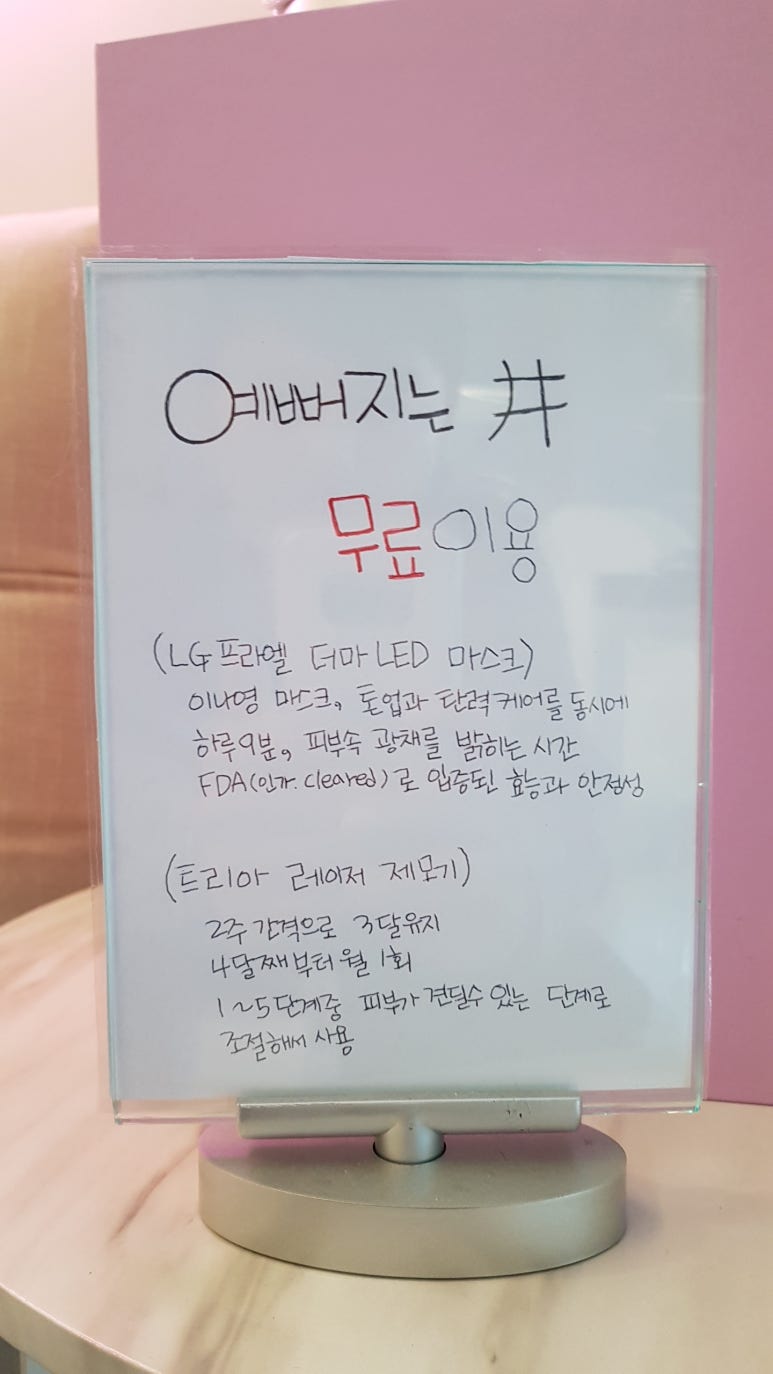 예뻐지는 井
무료이용
(LG프라엘 더마 LED 마스크)
이나영 마스크, 톤업과 탄력케어를 동시에
하루9분, 피부속 광채를 밝히는 시간
FDA(인가. cleared)로 입증된 효능과 안정성
(트리아 레이저 제모기)
2주 간격으로 3달유지
4달째부터 월 1회
1~5단계중 피부가 견딜수 있는 단계로
조절해서 사용